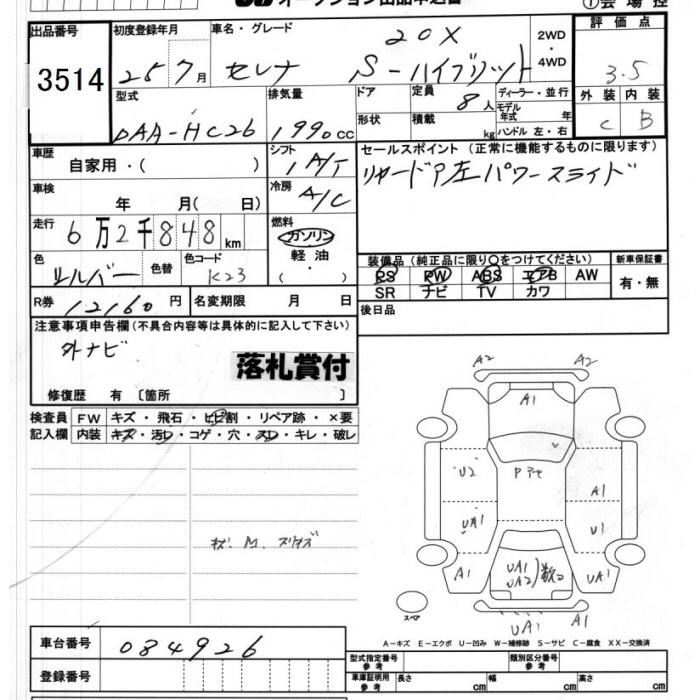 オークション出品申込書
①会場控
出品番号 3514
初度登録年月 25 7月
車名・グレード セレナ 20X S-ハイブリット
2WD・4WD
評価点 3.5
外装 C 内装 B
型式 DAA-HC26
排気量 1990cc
ドア 形状
定員 8人
積載 kg
ディーラー・並行
モデル年式 年
ハンドル 左・右
車歴 自家用・( )
シフト 1A/T
セールスポイント (正常に機能するものに限ります)
リヤードア左パワースライド
車検 年 月( 日)
冷房 A/C
走行 6万2千848km
燃料 ガソリン 軽油 ( ・ )
色 シルバー 色替
色コード K23
装備品 (純正品に限り○をつけてください)
PS PW ABS エアB AW
SR ナビ TV カワ
新車保証書 有・無
R券 12160円
名変期限 月 日
後日品
注意事項申告欄 (不具合内容等は具体的に記入して下さい)
外ナビ
落札賞付
修復歴 有 〔箇所 〕
検査員記入欄
FW キズ・飛石・ヒビ割・リペア跡・×要
内装 キズ・汚レ・コゲ・穴・スレ・キレ・破レ
A2 A2
A1
U2 A1
UA1 U1
A1 UA1 UA2 UA1
スペア
UA1 A1
A-キズ E-エクボ U-凹み W-補修跡 S-サビ C-腐食 XX-交換済
車台番号 084926
登録番号
型式指定番号 参考
類別区分番号 参考
車庫証明用 参考
長さ cm 幅 cm 高さ cm